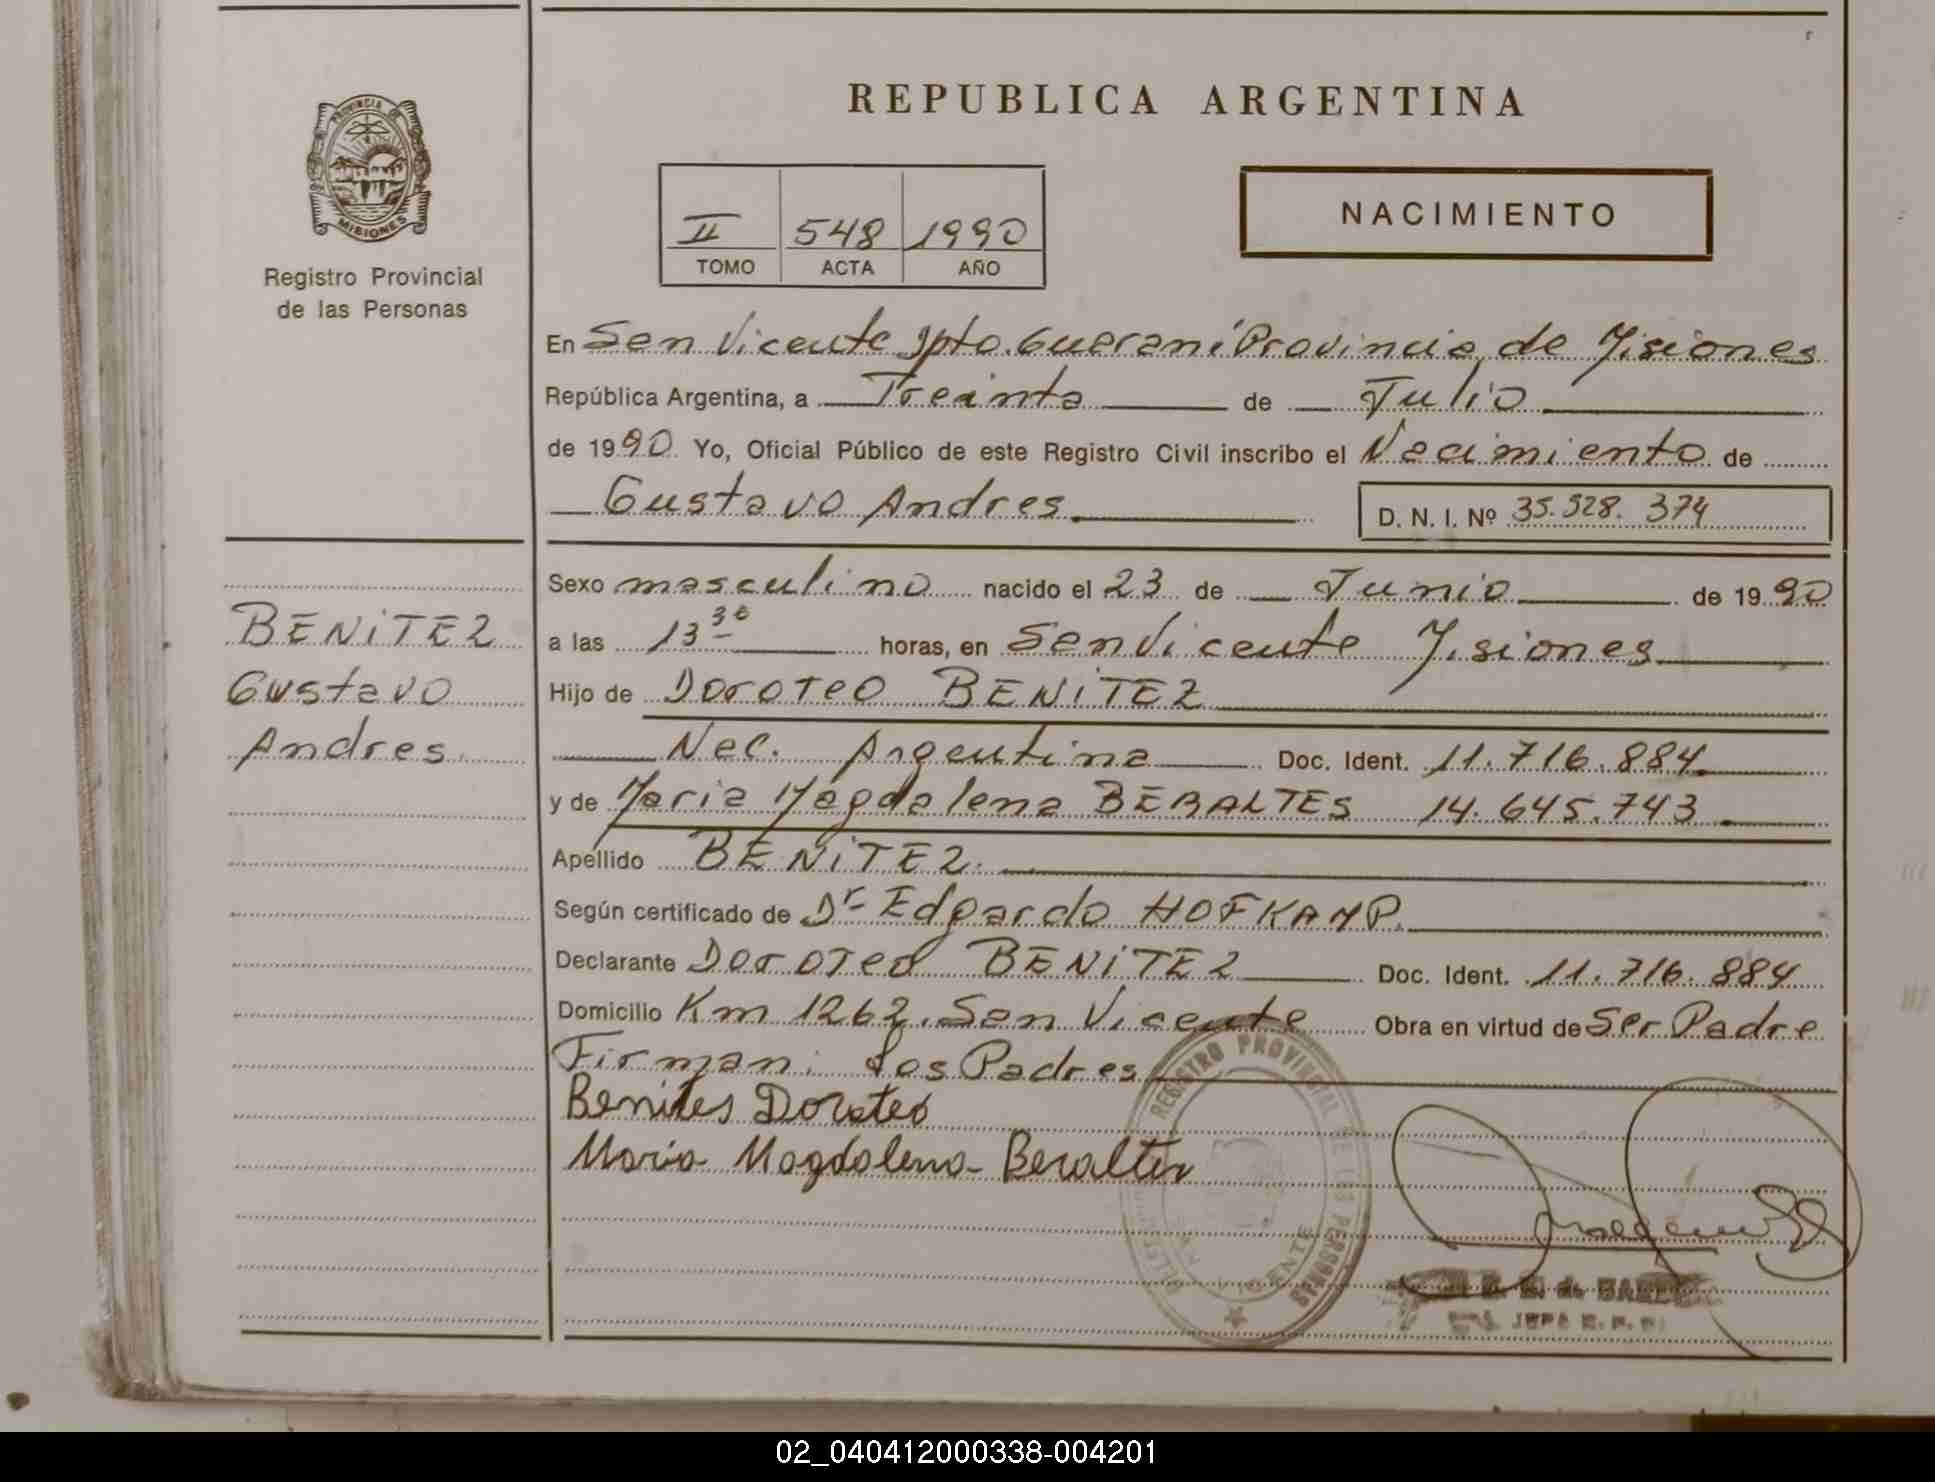 PROVINCIA DE
MISIONES
Registro Provincial
de las Personas
BENiTEZ
Gustavo
Andres.
REPUBLICA ARGENTINA
II 548 1990
TOMO ACTA AÑO
NACIMIENTO
En San Vicente Dpto. Guarani Provincia de Misiones
República Argentina, a Treinta de Julio
de 1990 Yo, Oficial Público de este Registro Civil inscribo el Nacimiento de
Gustavo Andres
D. N. I. Nº 35.328.374
Sexo masculino nacido el 23 de Junio de 1990
a las 13 30 horas, en San Vicente Misiones
Hijo de Doroteo BENiTEZ
Nac. Argentina Doc. Ident. 11.716.884
y de Maria Magdalena BERALTES 14.645.743
Apellido BENiTEZ.
Según certificado de Dr Edgardo HOFKAMP.
Declarante Doroteo BENiTEZ Doc. Ident. 11.716.884
Domicilio Km 1262. San Vicente Obra en virtud de Ser Padre
Firman: Los Padres
Benites Doroteo
Maria Magdalena Beralter
REGISTRO PROVINCIAL DE LAS PERSONAS
VICENTE
JEFA R. P. P.
02_040412000338-004201